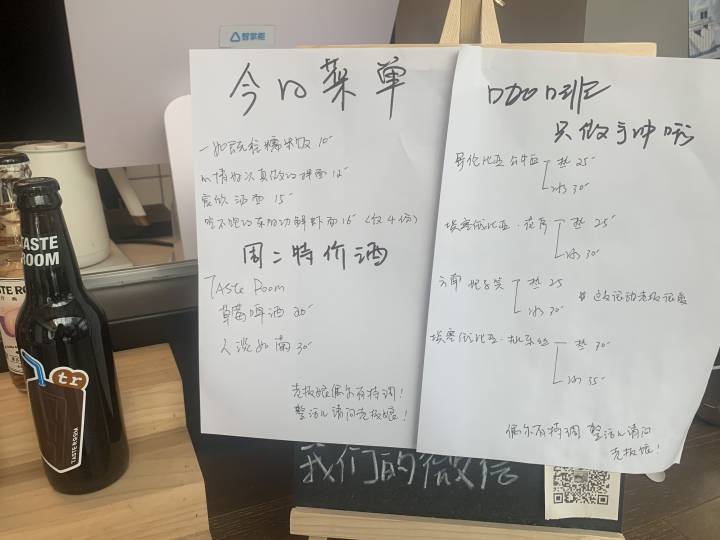 智掌柜
今日菜单
一如既往糯米饭 10
心情好认真做的拌面 12
喜欢 汤面 15
吃不饱的东阴功鲜虾面 16 (仅4份)
周二特价酒
Taste Room
草莓啤酒 20
人淡如南 30
老板娘偶尔有特调!
整活儿请问老板娘!
咖啡
只做手冲哦
哥伦比亚
热 25
冰 30
埃塞俄比亚·花
热 25
冰 30
云南
热 25
冰 30
埃塞俄比亚
热 30
冰 35
偶尔有特调 整活儿请问
老板娘!
我们的微信
TASTE
ROOM
tr
TASTE ROOM